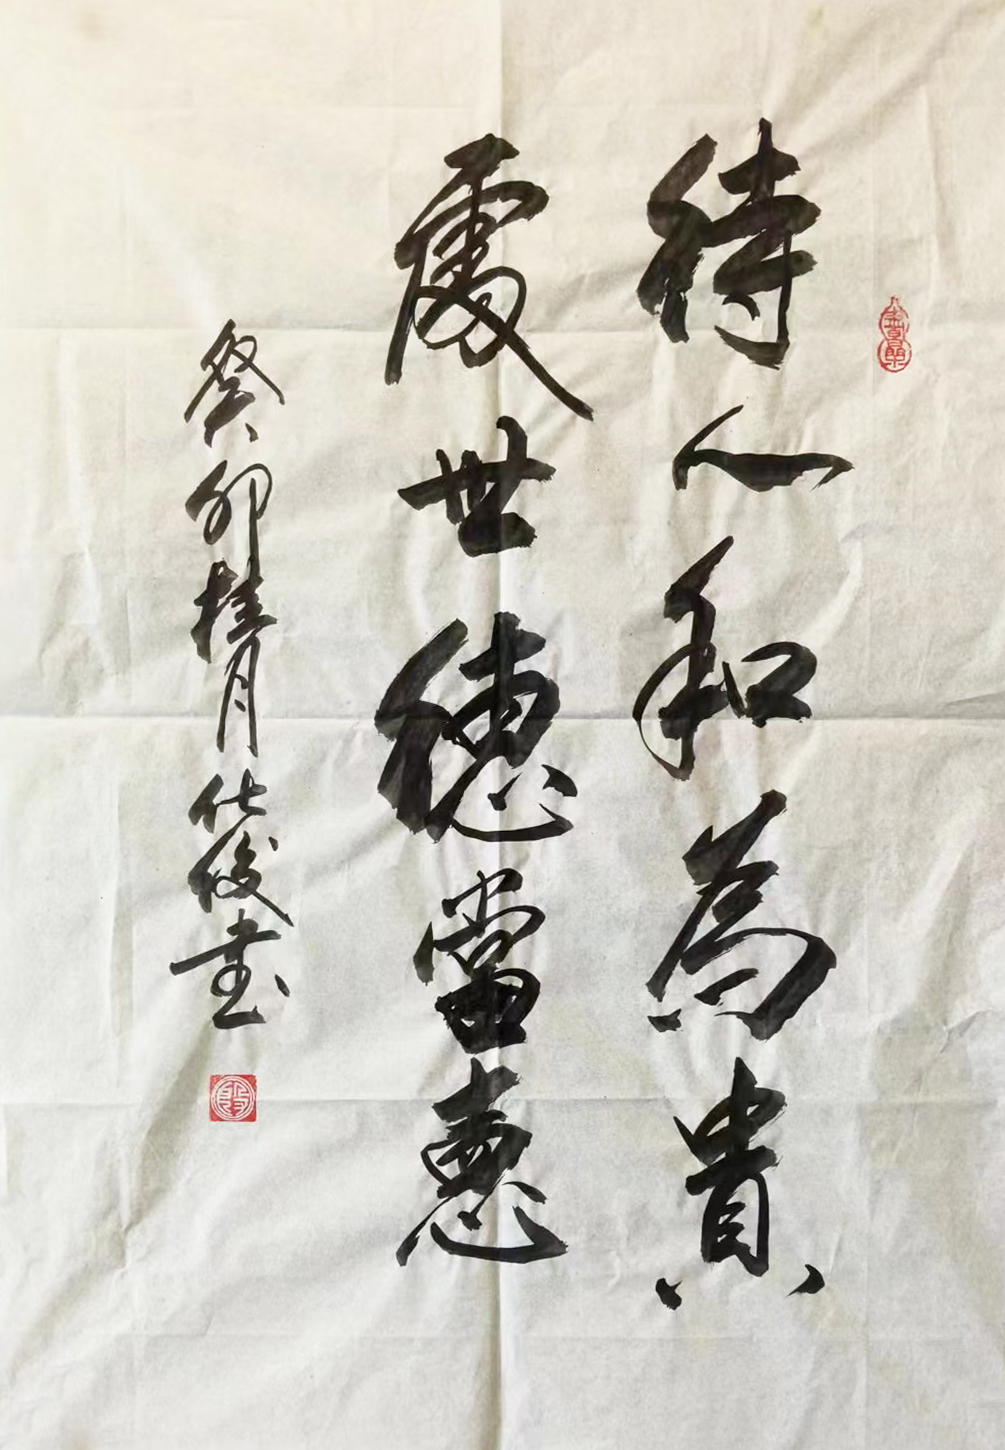 待人和為貴
處世德當惠
癸卯桂月化俊書